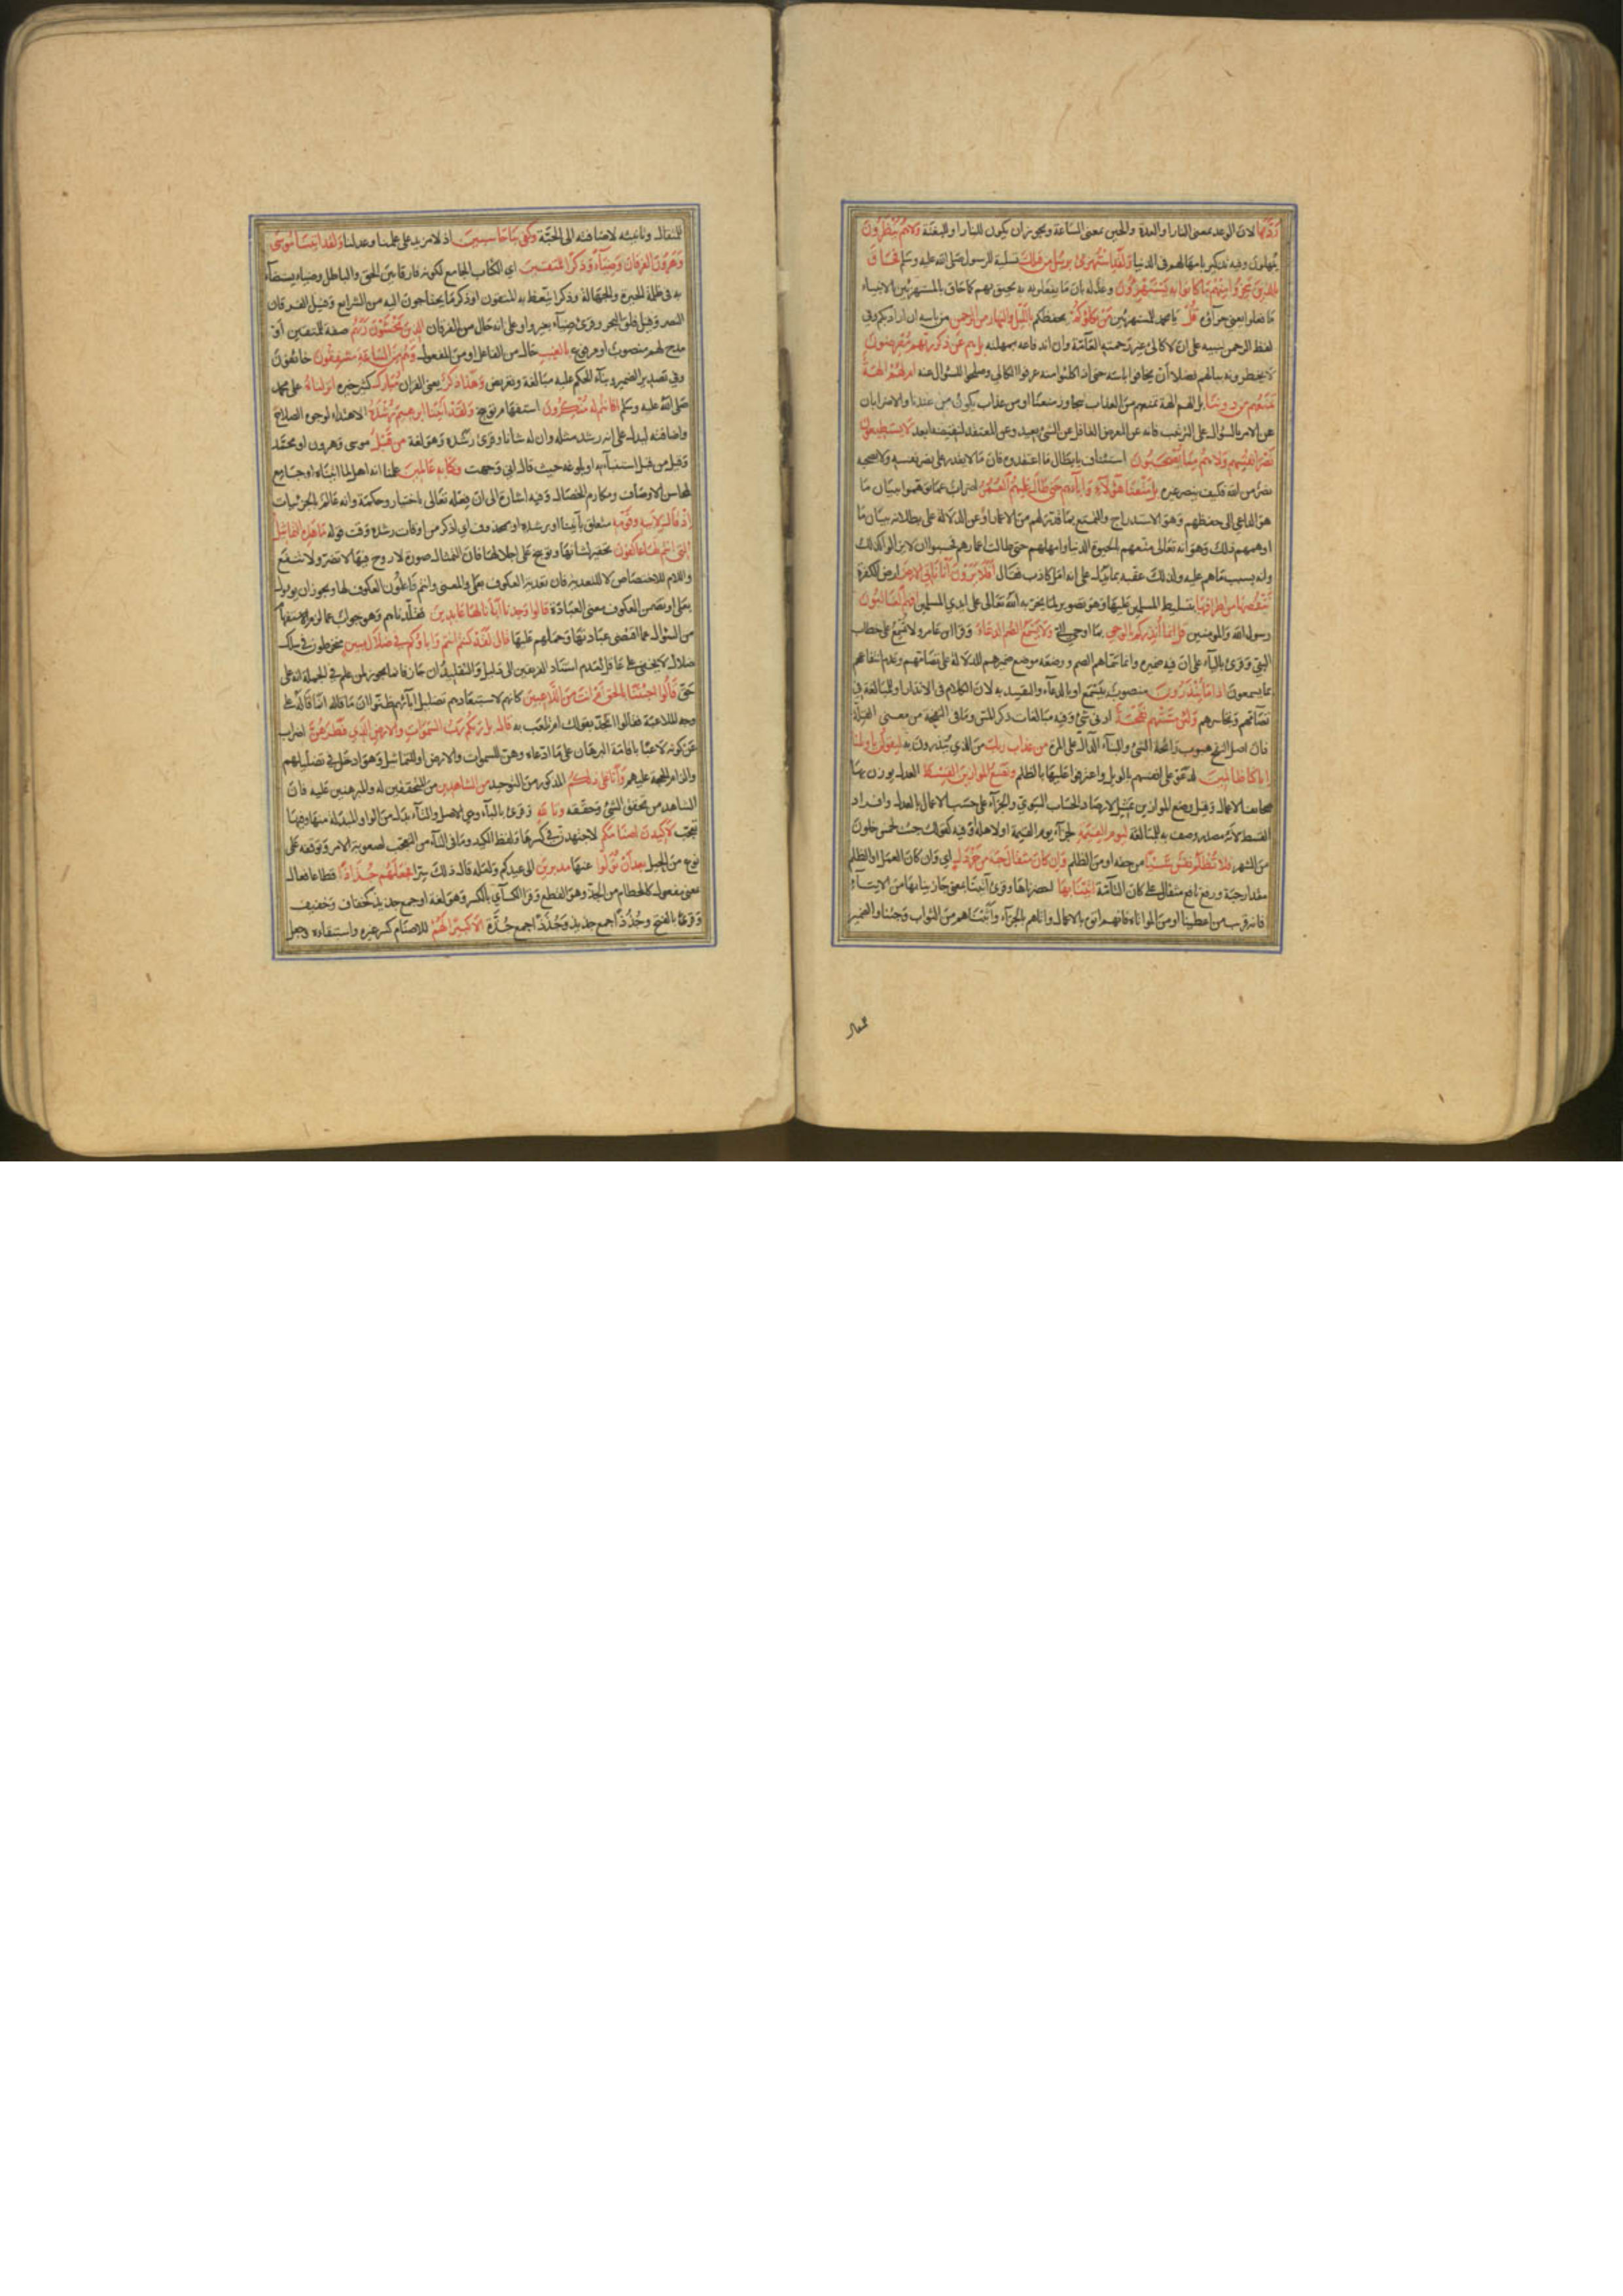 رَدَّهَا لان الوعد بمعنى النار او العدة والحين بمعنى الساعة ويجوز ان يكون للنار او للبغتة وَلَا هُمْ يُنْظَرُونَ
يمهلون وفيه تذكير بامهالهم في الدنيا وَلَقَدِ اسْتُهْزِئَ بِرُسُلٍ مِنْ قَبْلِكَ تسلية لرسول صلى الله عليه وسلم فَحَاقَ
بِالَّذِينَ سَخِرُوا مِنْهُمْ مَا كَانُوا بِهِ يَسْتَهْزِؤُنَ وعد له بان ما يفعلونه به يحيق بهم كما حاق بالمستهزئين الانبياء
ما فعلوا يعني جزاؤه قُلْ يا محمد للمستهزئين مَنْ يَكْلَؤُكُمْ يحفظكم بِاللَّيْلِ وَالنَّهَارِ مِنَ الرَّحْمَنِ من باسه ان اراد بكم وفي
لفظ الرحمن تنبيه على ان لا كالئ غير رحمته العامة وان اندفاعه بمهلته بَلْ هُمْ عَنْ ذِكْرِ رَبِّهِمْ مُعْرِضُونَ
لا يخطرونه ببالهم فضلا ان يخافوا باسه حتى اذا كلئوا منه عرفوا الكالئ وصلحوا للسؤال عنه أَمْ لَهُمْ آلِهَةٌ
تَمْنَعُهُمْ مِنْ دُونِنَا بل الهم الهة تمنعهم من العذاب تتجاوز منعنا او من عذاب يكون من عندنا والاضرابان
عن الامر بالسؤال على الترتيب فانه عن المعرض الغافل عن الشئ بعيد وعن المعتقد لنقيضه ابعد لَا يَسْتَطِيعُونَ
نَصْرَ أَنْفُسِهِمْ وَلَا هُمْ مِنَّا يُصْحَبُونَ استئناف بابطال ما اعتقدوه فان ما لا يقدر على نصر نفسه ولا يصحبه
نصر من الله فكيف ينصر غيره بَلْ مَتَّعْنَا هَؤُلَاءِ وَآبَاءَهُمْ حَتَّى طَالَ عَلَيْهِمُ الْعُمُرُ اضراب عما توهموا ببيان ما
هو الداعي الى حفظهم وهو الاستدراج والتمتيع بما قدر لهم من الاعمار او عن الدلالة على بطلانه ببيان ما
اوهمهم ذلك وهو انه تعالى متعهم الحيوة الدنيا وامهلهم حتى طالت اعمارهم فحسبوا ان لا يزالوا كذلك
وانه بسبب ما هم عليه ولذلك عقبه بما يدل على انه امل كاذب فقال أَفَلَا يَرَوْنَ أَنَّا نَأْتِي الْأَرْضَ ارض الكفرة
نَنْقُصُهَا مِنْ أَطْرَافِهَا بتسليط المسلمين عليها وهو تصوير لما يجريه الله تعالى على ايدي المسلمين أَفَهُمُ الْغَالِبُونَ
رسول الله والمؤمنين قُلْ إِنَّمَا أُنْذِرُكُمْ بِالْوَحْيِ بما اوحي الي وَلَا يَسْمَعُ الصُّمُّ الدُّعَاءَ وقرا ابن عامر ولا تسمع على خطاب
النبي وقرئ بالياء على ان فيه ضميره وانما سماهم الصم ووضعه موضع ضميرهم للدلالة على تصامهم وعدم انتفاعهم
بما يسمعون إِذَا مَا يُنْذَرُونَ منصوب بيسمع او بالدعاء والتقييد به لان الكلام في الانذار او للمبالغة في
تصامهم وتجاسرهم وَلَئِنْ مَسَّتْهُمْ نَفْحَةٌ ادنى شئ وفيه مبالغات ذكر المس وما في النفحة من معنى القلة
فان اصل النفح هبوب رائحة الشئ والبناء الدال على المرة مِنْ عَذَابِ رَبِّكَ من الذي ينذرون به لَيَقُولُنَّ يَا وَيْلَنَا
إِنَّا كُنَّا ظَالِمِينَ لدعوا على انفسهم بالويل واعترفوا عليها بالظلم وَنَضَعُ الْمَوَازِينَ الْقِسْطَ العدل يوزن بها
صحائف الاعمال وقيل وضع الموازين تمثيل لارصاد الحساب السوي والجزاء على حسب الاعمال بالعدل وافراد
القسط لانه مصدر وصف به للمبالغة لِيَوْمِ الْقِيَمَةِ لجزاء يوم القيمة او لاهله او فيه كقولك جئت لخمس خلون
من الشهر فَلَا تُظْلَمُ نَفْسٌ شَيْئًا من حقه او من الظلم وَإِنْ كَانَ مِثْقَالَ حَبَّةٍ مِنْ خَرْدَلٍ اي وان كان العمل او الظلم
مقدار حبة ورفع نافع مثقال على كان التامة أَتَيْنَا بِهَا احضرناها وقرئ آتينا بمعنى جازينا بها من الايتاء
فانه قريب من اعطينا او من المواتاة فانهم اتوه بالاعمال واتاهم بالجزاء واثبنا هم من الثواب وجئنا والضمير
للمثقال
للمثقال وتانيثه لاضافته الى الحبة وَكَفَى بِنَا حَاسِبِينَ اذ لا مزيد على علمنا وعدلنا وَلَقَدْ آتَيْنَا مُوسَى
وَهَرُونَ الْفُرْقَانَ وَضِيَاءً وَذِكْرًا لِلْمُتَّقِينَ اي الكتاب الجامع لكونه فارقا بين الحق والباطل وضياء يستضاء
به في ظلمة الحيرة والجهالة وذكرا يتعظ به المتقون او ذكر ما يحتاجون اليه من الشرايع وقيل الفرقان
النصر وقيل فلق البحر وقرئ ضياء بغير واو على انه حال من الفرقان الَّذِينَ يَخْشَوْنَ رَبَّهُمْ صفة للمتقين او
مدح لهم منصوب او مرفوع بِالْغَيْبِ حال من الفاعل او من المفعول وَهُمْ مِنَ السَّاعَةِ مُشْفِقُونَ خائفون
وفي تصدير الضمير وبناء الحكم عليه مبالغة وتعريض وَهَذَا ذِكْرٌ يعني القران مُبَارَكٌ كثير خيره أَنْزَلْنَاهُ على محمد
صلى الله عليه وسلم أَفَأَنْتُمْ لَهُ مُنْكِرُونَ استفهام توبيخ وَلَقَدْ آتَيْنَا إِبْرَهِيمَ رُشْدَهُ الاهتداء لوجوه الصلاح
واضافته ليدل على انه رشد مثله وان له شانا وقرئ رشده وهو لغة مِنْ قَبْلُ موسى وهرون او محمد
وقيل من قبل استنبائه او بلوغه حيث قال اني وجهت وَكُنَّا بِهِ عَالِمِينَ علمنا انه اهل لما اتيناه او جامع
لمحاسن الاوصاف ومكارم الخصال وفيه اشارة الى ان فعله تعالى باختيار وحكمة وانه عالم بالجزئيات
إِذْ قَالَ لِأَبِيهِ وَقَوْمِهِ متعلق بآتينا او برشده او بمحذوف اي اذكر من اوقات رشده وقت قوله مَا هَذِهِ التَّمَاثِيلُ
الَّتِي أَنْتُمْ لَهَا عَاكِفُونَ تحقير لشانها وتوبيخ على اجلالها فان التمثال صورة لا روح فيها لا تضر ولا تنفع
واللام للاختصاص لا للتعدية فان تعدية العكوف بعلى والمعنى وانتم فاعلون العكوف لها ويجوز ان يؤول
بعلى او تضمن العكوف معنى العبادة قَالُوا وَجَدْنَا آبَاءَنَا لَهَا عَابِدِينَ فقلدناهم وهو جواب عما لزم الاستفهام
من السؤال عما اقتضى عبادتها وحملهم عليها قَالَ لَقَدْ كُنْتُمْ أَنْتُمْ وَآبَاؤُكُمْ فِي ضَلَالٍ مُبِينٍ منخرطون في سلك
ضلال لا يخفى على عاقل لعدم استناد الفريقين الى دليل والتقليد ان جاز فانما يجوز لمن علم في الجملة انه على
حق قَالُوا أَجِئْتَنَا بِالْحَقِّ أَمْ أَنْتَ مِنَ اللَّاعِبِينَ كانهم لاستبعادهم تضليل آبائهم ظنوا ان ما قاله انما قاله على
وجه الملاعبة فقالوا ابجد تقوله ام تلعب به قَالَ بَلْ رَبُّكُمْ رَبُّ السَّمَوَاتِ وَالْأَرْضِ الَّذِي فَطَرَهُنَّ اضراب
عن كونه لاعبا باقامة البرهان على ما ادعاه وهن للسموات والارض او للتماثيل وهو ادخل في تضليلهم
والزام الحجة عليهم وَأَنَا عَلَى ذَلِكُمْ المذكور من التوحيد مِنَ الشَّاهِدِينَ من المتحققين له والمبرهنين عليه فان
الشاهد من تحقق الشئ وحققه وَتَاللَّهِ وقرئ بالباء وهي الاصل والتاء بدل من الواو المبدلة منها وفيها
تعجب لَأَكِيدَنَّ أَصْنَامَكُمْ لاجتهدن في كسرها ولفظ الكيد وما في التاء من التعجب لصعوبة الامر وتوقفه على
نوع من الحيل بَعْدَ أَنْ تُوَلُّوا عنها مُدْبِرِينَ الى عيدكم ولعله قال ذلك سرا فَجَعَلَهُمْ جُذَاذًا قطاعا فعال
بمعنى مفعول كالحطام من الجذ وهو القطع وقرا الكسائي بالكسر وهو لغة او جمع جذيذ كخفاف وخفيف
وقرئ بالفتح وجُذُذًا جمع جذيذ وجُذَذًا جمع جُذَّة إِلَّا كَبِيرًا لَهُمْ للاصنام كسر غيره واستبقاه وجعل